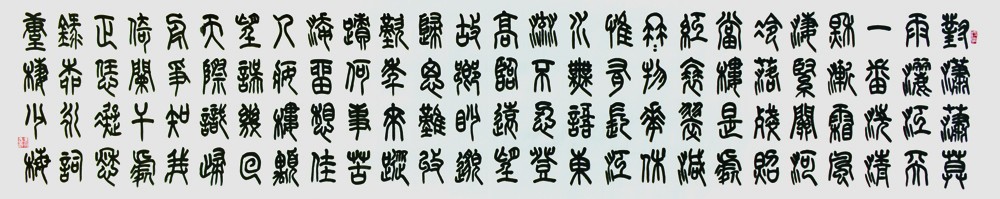 對瀟瀟莫
雨灑江天
一番洗清
秋漸霜風
淒緊關河
冷落殘照
當樓是處
紅衰翠減
冉冉物華休
惟有長江
水無語東
流不忍登
高臨遠望
故鄉眇邈
歸思難收
歎年來蹤
蹟何事苦
淹留想佳
人妝樓顒
望誤幾回
天際識歸
舟爭知我
倚闌干處
正恁凝愁
錄柳永詞
棲少梅